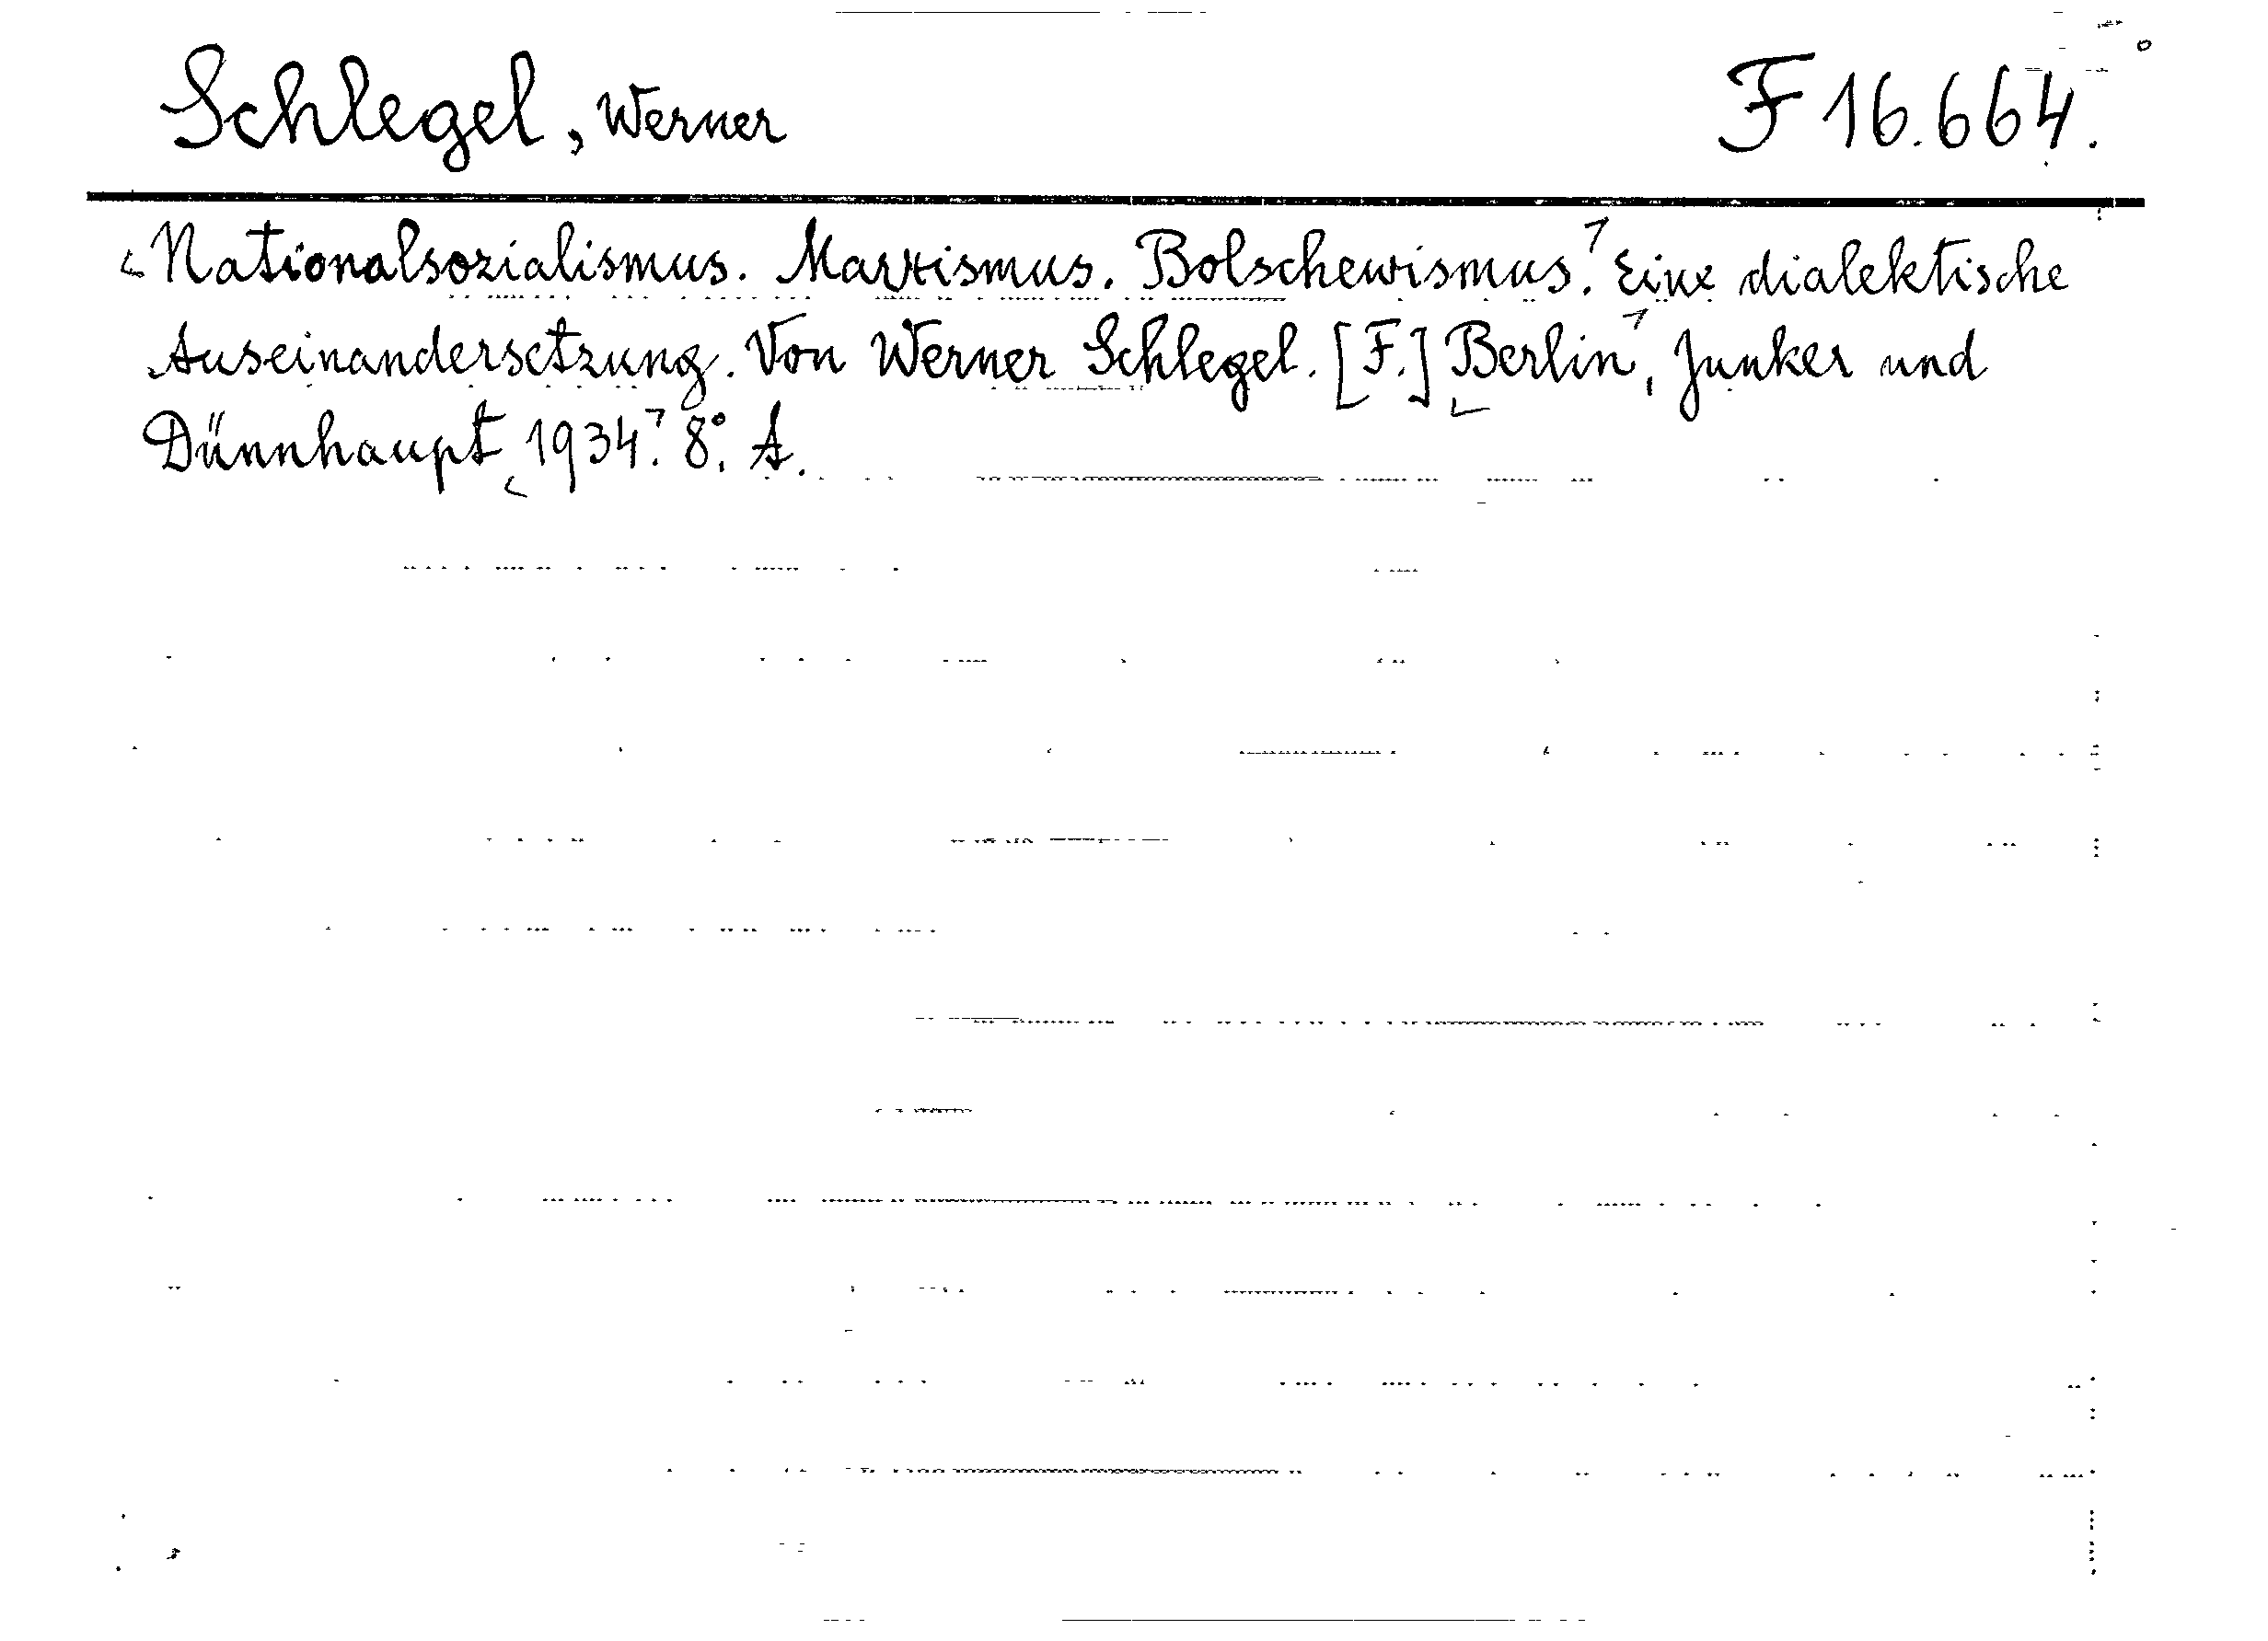 Schlegel, Werner
F 16.664.
Nationalsozialismus. Marxismus. Bolschewismus. Eine dialektische
Auseinandersetzung. Von Werner Schlegel. [F.] Berlin, Junker und
Dünnhaupt 1934. 8°. A.